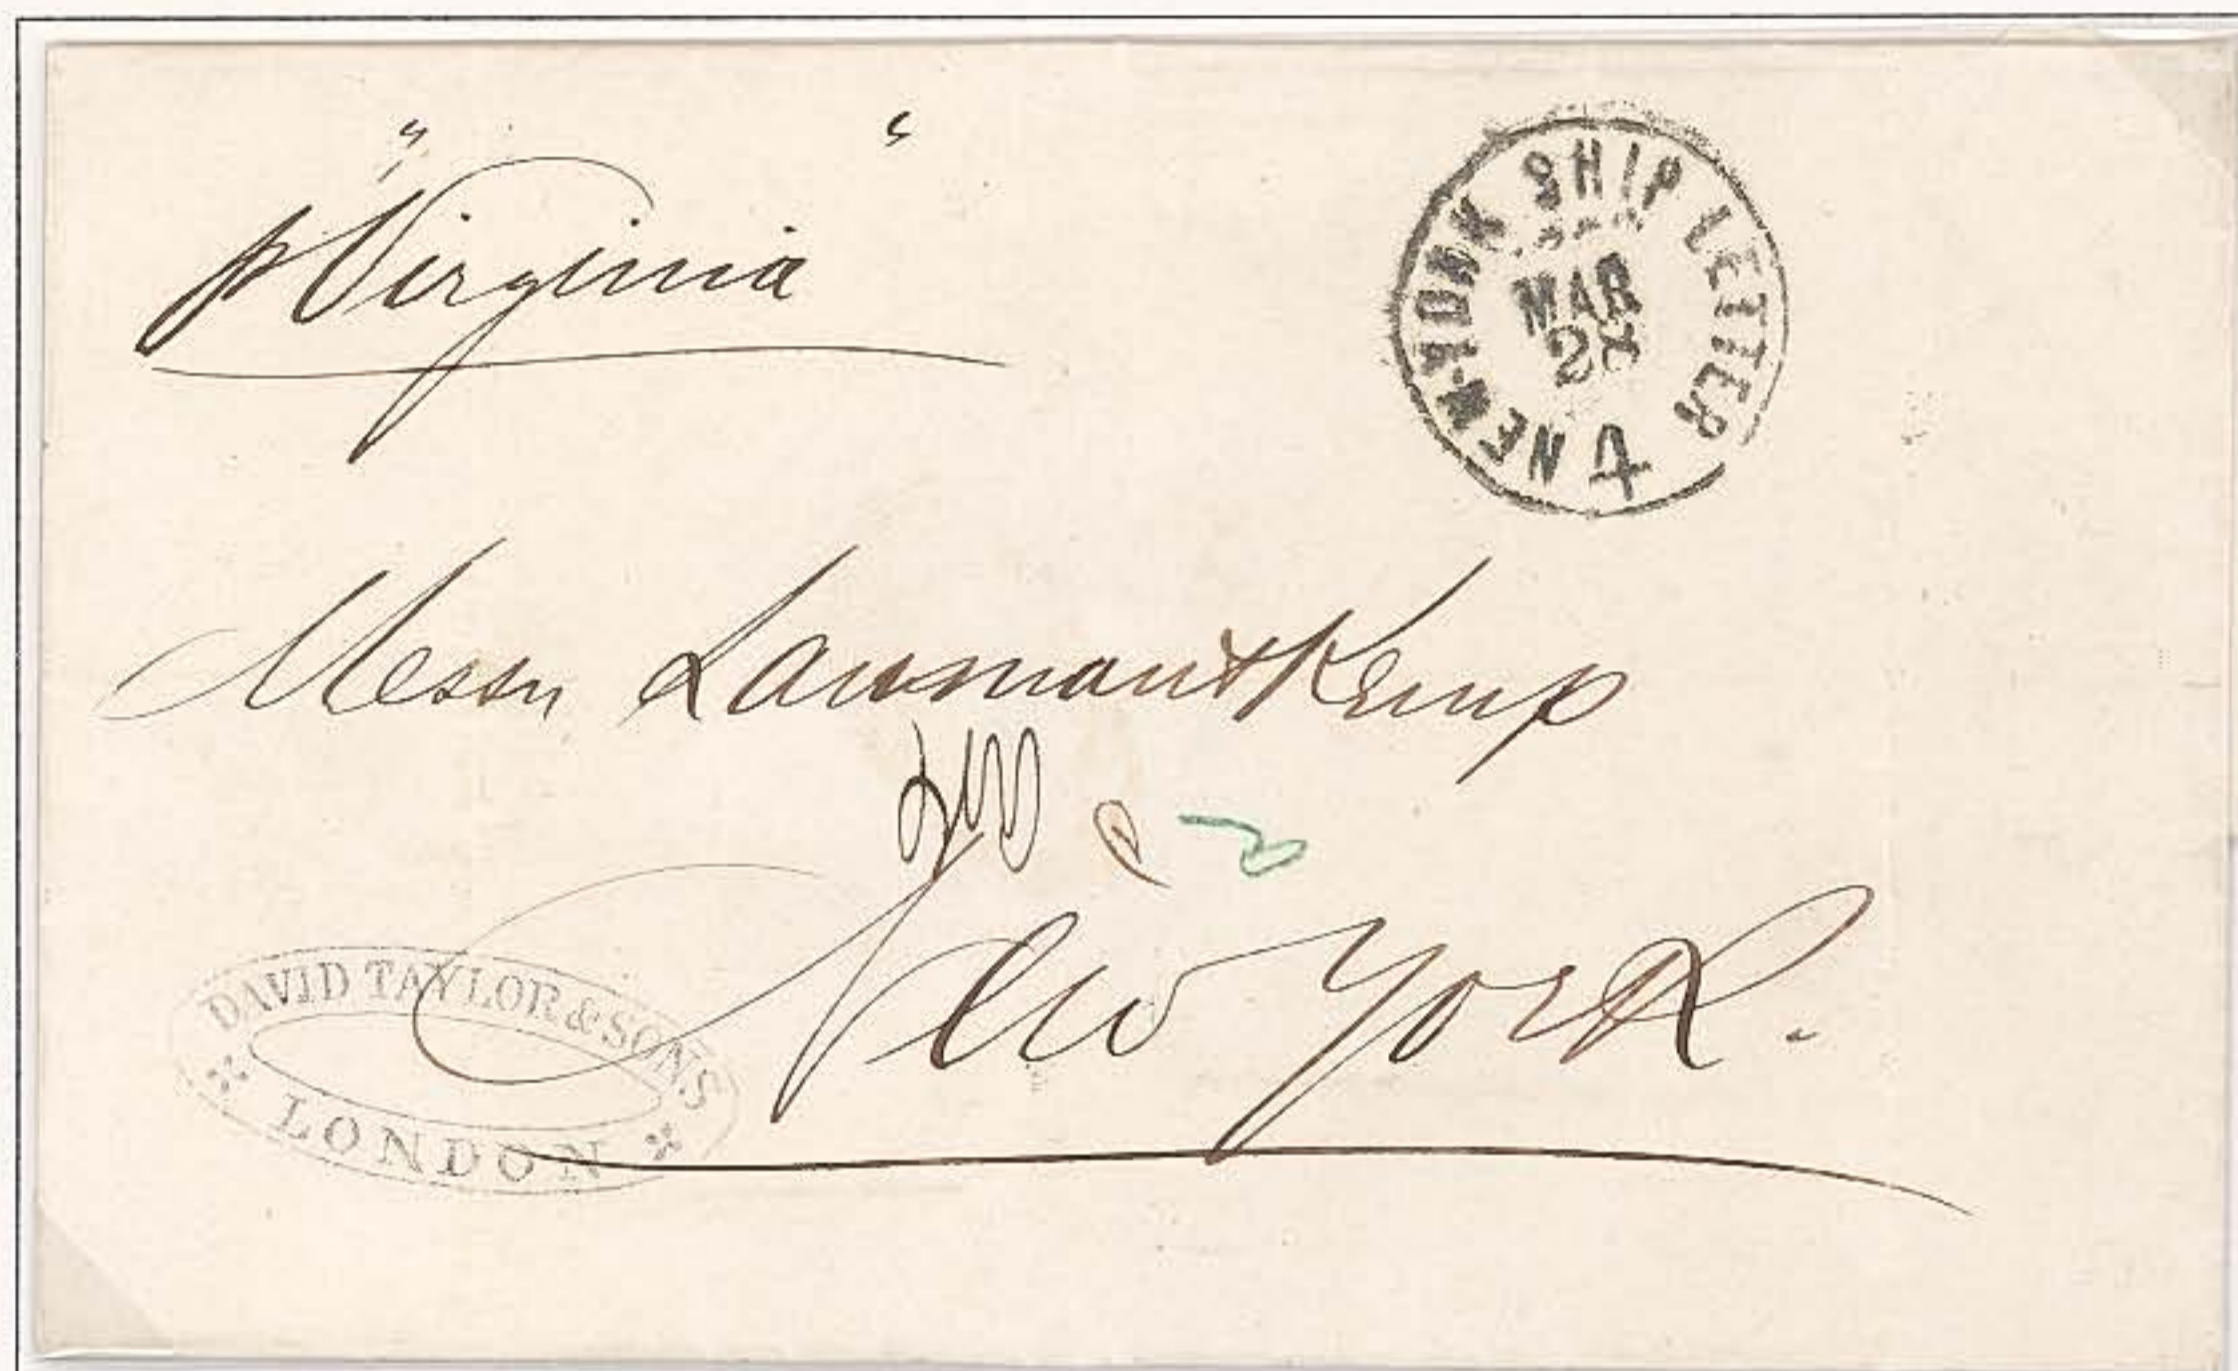 "p Virginia"
NEW-YORK SHIP LETTER
MAR
4
Messrs Lanman & Kemp
New York.
DAVID TAYLOR & SONS
LONDON